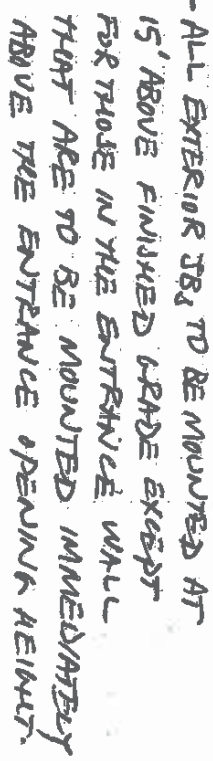 - ALL EXTERIOR JBs TO BE MOUNTED AT
15' ABOVE FINISHED GRADE EXCEPT
FOR THOSE IN THE ENTRANCE WALL
THAT ARE TO BE MOUNTED IMMEDIATELY
ABOVE THE ENTRANCE OPENING HEIGHT.